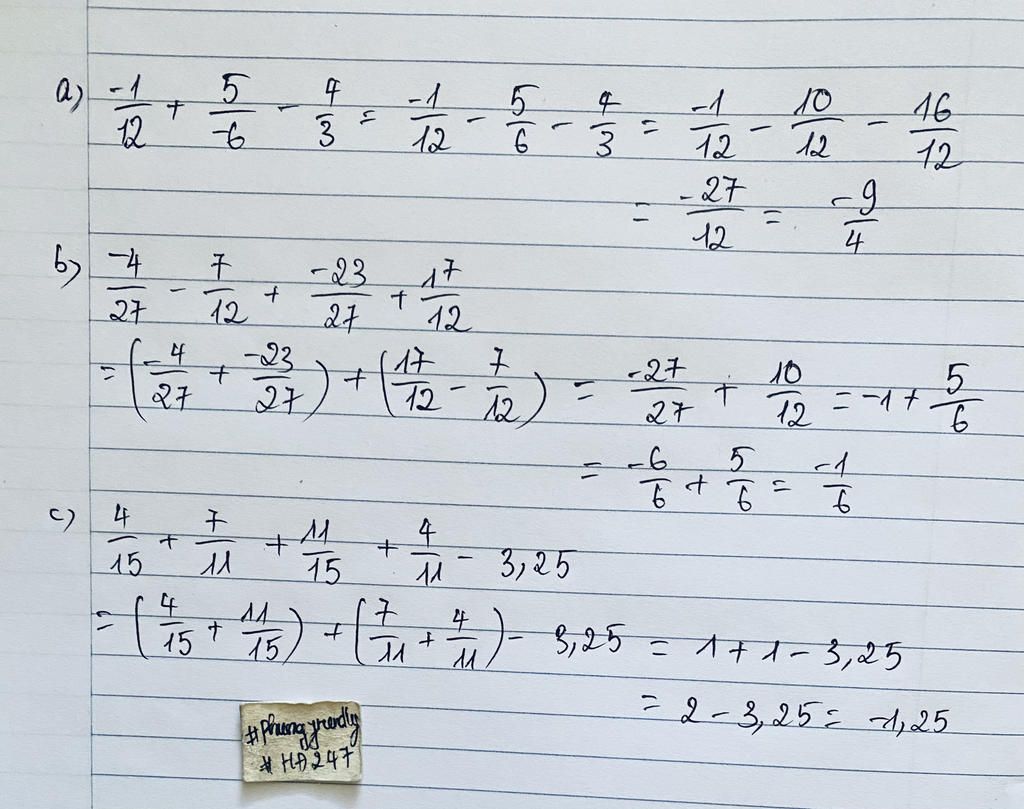 a) -1/12 + 5/-6 - 4/3 = -1/12 - 5/6 - 4/3 = -1/12 - 10/12 - 16/12
= -27/12 = -9/4
b) -4/27 - 7/12 + -23/27 + 17/12
= (-4/27 + -23/27) + (17/12 - 7/12) = -27/27 + 10/12 = -1 + 5/6
= -6/6 + 5/6 = -1/6
c) 4/15 + 7/11 + 11/15 + 4/11 - 3,25
= (4/15 + 11/15) + (7/11 + 4/11) - 3,25 = 1 + 1 - 3,25
= 2 - 3,25 = -1,25
# HA247